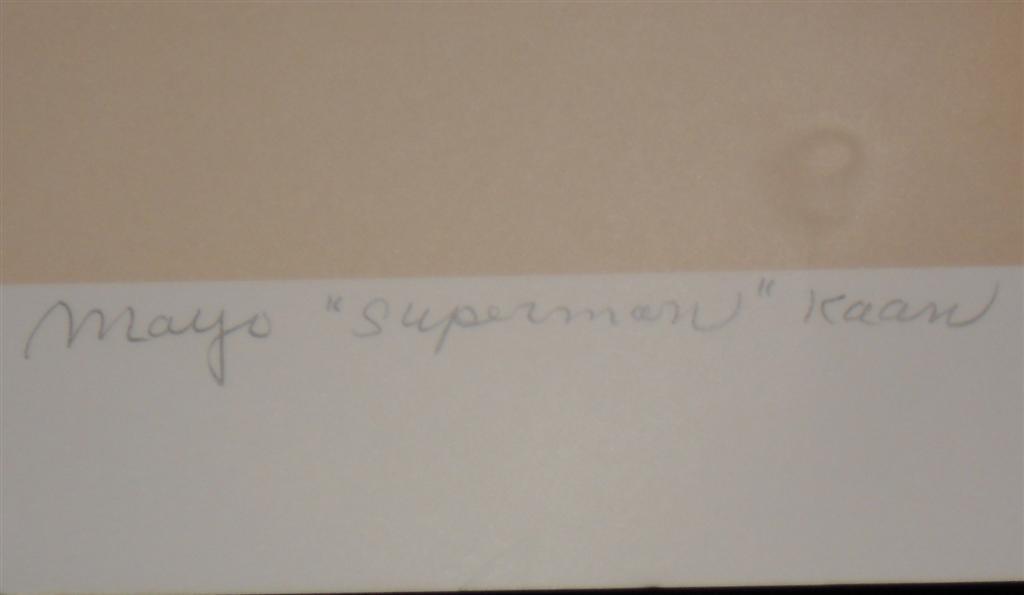 Mayo "Superman" Kaan